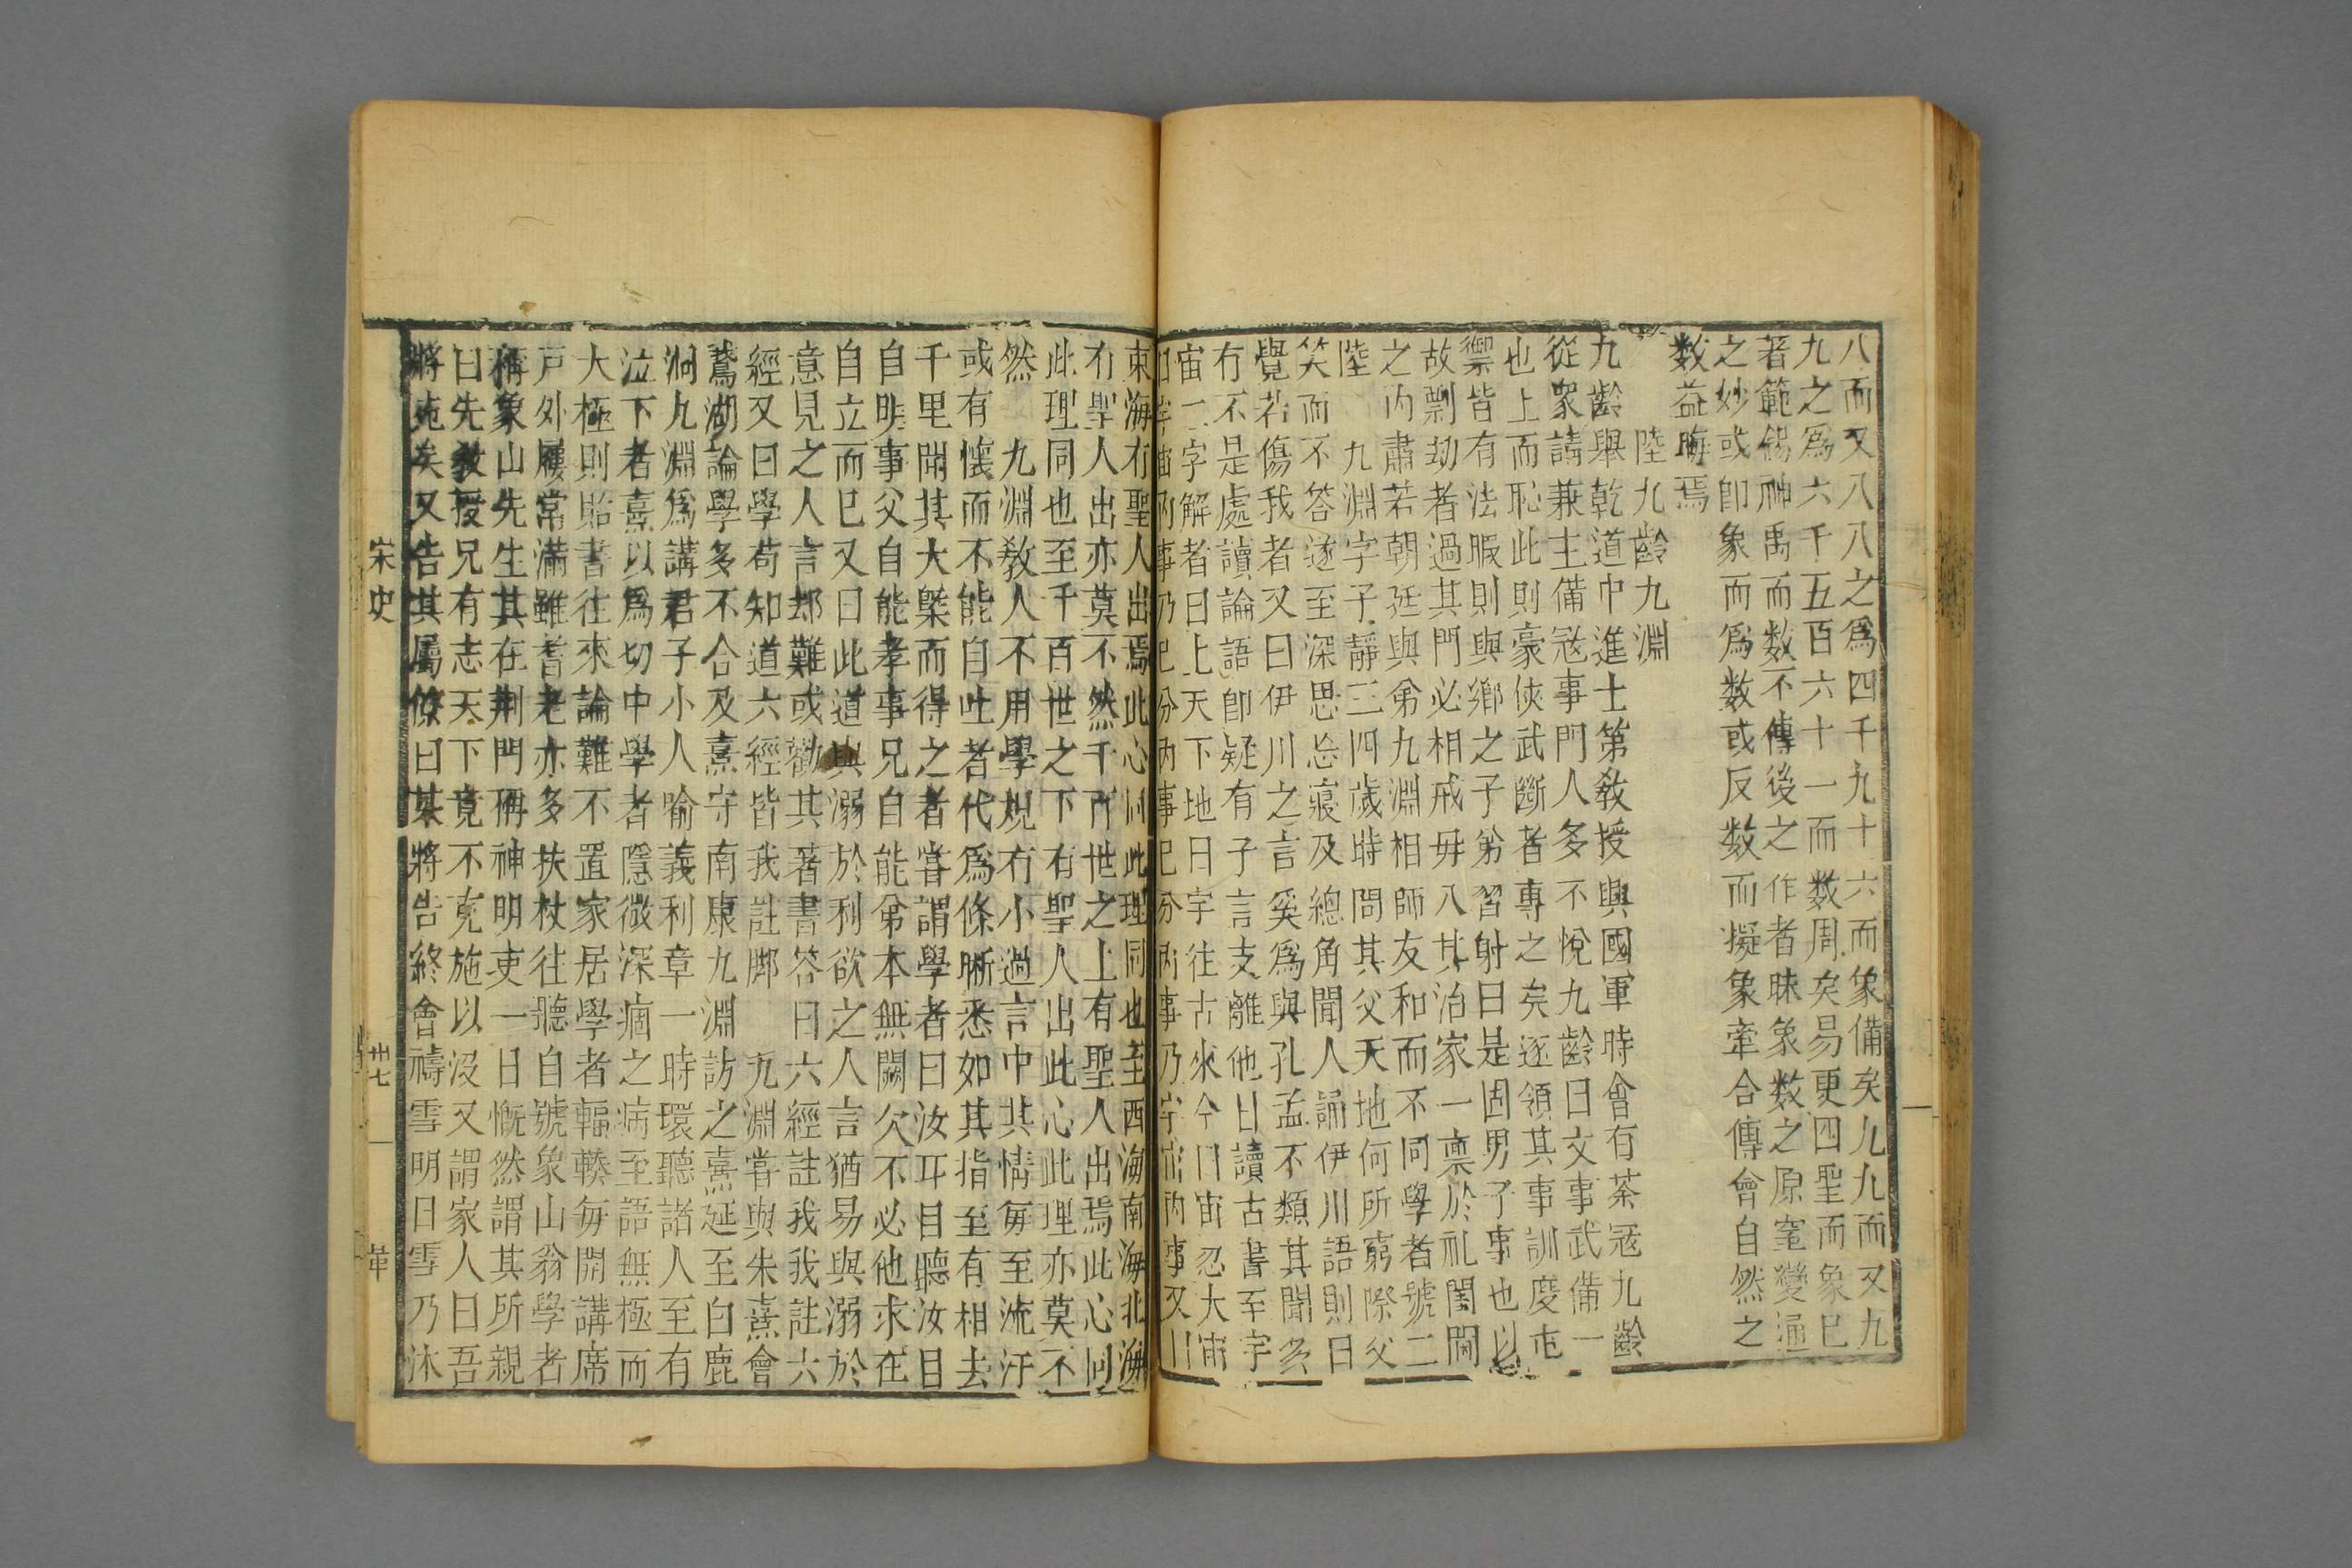 八而又八八之爲四千九十六而象備矣九九而又九
九之爲六千五百六十一而数周矣易更四聖而象已
著範錫神禹而数不傳後之作者昧象数之原窒變通
之妙或即象而爲数或反数而擬象牽合傅會自然之
数益晦焉
陸九齡九淵
九齡舉乾道中進士第教授興國軍時會有茶冦九齡
從衆請兼主備冦事門人多不悅九齡曰文事武備一
也上而恥此則豪俠武斷者專之矣遂領其事訓度屯
禦皆有法暇則與鄉之子弟習射曰是固男子事也以
故剽劫者過其門必相戒毋八其治家一禀於礼閨閫
之内肅若朝廷與弟九淵相師友和而不同學者號二
陸 九淵字子靜三四歲時問其父天地何所窮際父
笑而不答遂至深思忘寢及總角聞人誦伊川語則曰
覺若傷我者又曰伊川之言奚爲與孔孟不類其聞多
有不是處讀論語即疑有子言支離他日讀古書至宇
宙二字解者曰上天下地曰宇往古來今曰宙忽大
宇宙内事乃已分内事已分内事乃宇宙内事又曰
東海有聖人出焉此心同此理同也至西海南海北海
有聖人出亦莫不然千百世之上有聖人出焉此心同
此理同也至千百世之下有聖人出此心此理亦莫不
然 九淵教人不用學規有小過言中其情毎至流汗
或有懷而不能自吐者代爲條晣悉如其指至有相去
千里聞其大槩而得之者嘗謂學者曰汝耳目聽汝目
自明事父自能孝事兄自能弟本無闕欠不必他求在
自立而已又曰此道與溺於利欲之人言猶易與溺於
意見之人言却難或勸其著書答曰六經註我我註六
經又曰學苟知道六經皆我註脚 九淵嘗與朱熹會
鵞湖論學多不合及熹守南康九淵訪之熹延至白鹿
洞九淵爲講君子小人喻義利章一時環聽諸人至有
泣下者熹以爲切中學者隱微深痼之病至語無極而
大極則貽書往來論難不置家居學者輻輳毎開講席
戸外屨常滿雖耆老亦多扶杖往聽自號象山翁學者
稱象山先生其在荆門稱神明吏一日慨然謂其所親
曰先教授兄有志天下竟不克施以沒又謂家人曰吾
將死矣又告其屬僚曰某將告終會禱雪明日雪乃沐
宋史
卅七
革